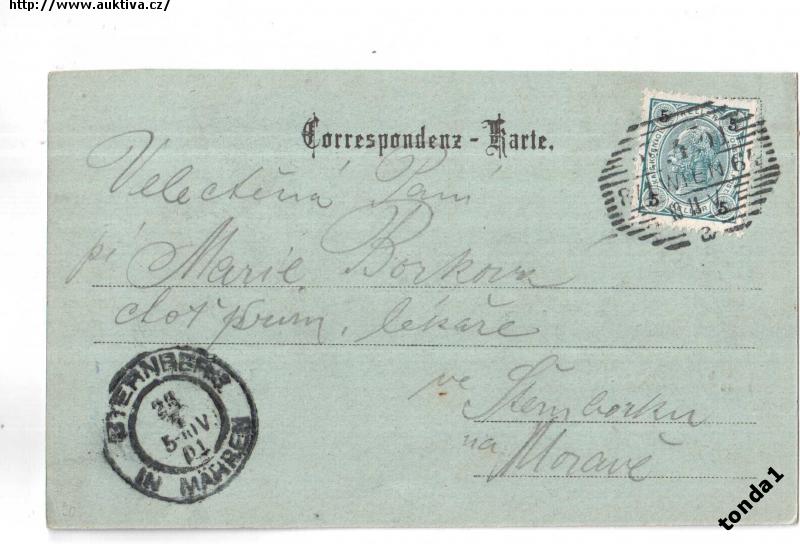 http://www.auktiva.cz/
Correspondenz - Karte.
5 5
5 5
WIEN
Velectěná Paní
pí Marie Borkova
choť prim. lékaře
ve Šternberku
na Moravě
STERNBERG
5-IIIV
01
IN MÄHREN
tonda1